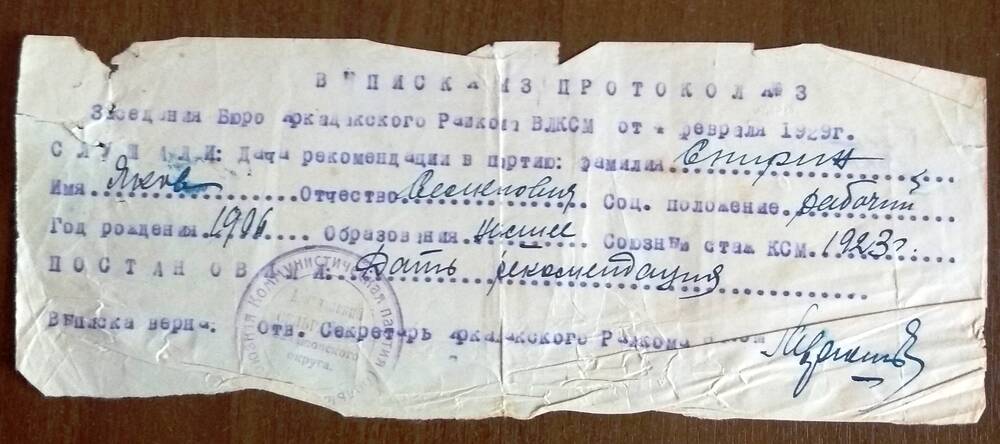 ВЫПИСКА ИЗ ПРОТОКОЛА № 3
Заседания Бюро Аркадакского Райкома ВЛКСМ от 4 февраля 1929г.
СЛУШАЛИ: Дача рекомендации в партию: фамилия Спирин
Имя Яков Отчество Соц. положение рабочий
Год рождения 1906 Образования низшее Союзный стаж КСМ. 1923 г.
ПОСТАНОВИЛИ: Дать рекомендация
Выписка верна: Отв. Секретарь Аркадакского Райкома ВЛКСМ
Коммунистическая партия
округа.